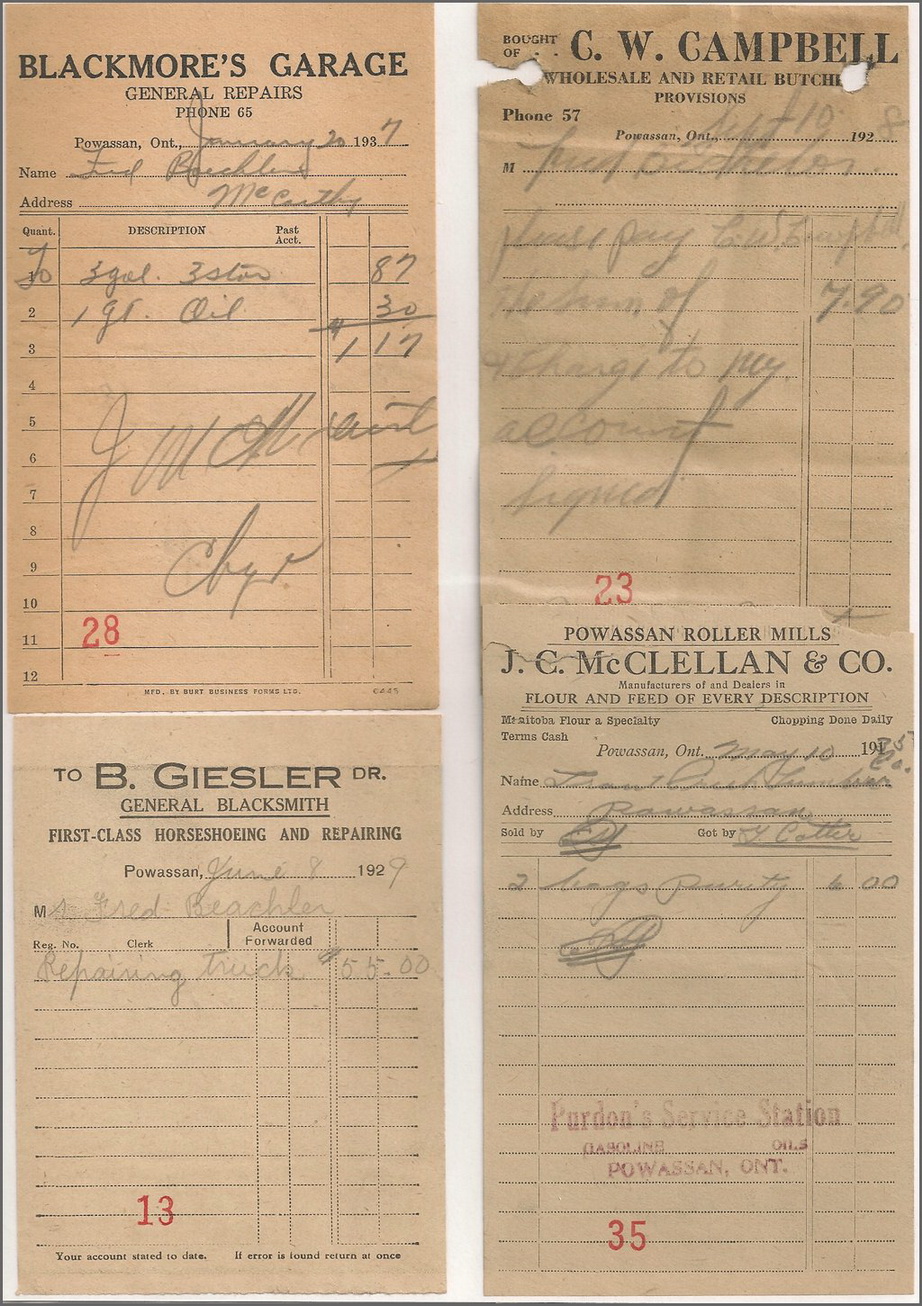 BLACKMORE'S GARAGE
GENERAL REPAIRS
PHONE 65
Powassan, Ont., January 20 1937
Name Fred Beechler
Address McCarthy
Quant. DESCRIPTION Past Acct.
1 3 gal. 3 star 87
2 1 qt. Oil 30
3 $1 17
4
5 J
6
7
8
9 Chgd
10
11
12
28
MFD. BY BURT BUSINESS FORMS LTD.
TO B. GIESLER DR.
GENERAL BLACKSMITH
FIRST-CLASS HORSESHOEING AND REPAIRING
Powassan, June 8 1929
M Fred Beachler
Reg. No. Clerk Account Forwarded
Repairing truck $55.00
13
Your account stated to date. If error is found return at once
BOUGHT OF C. W. CAMPBELL
WHOLESALE AND RETAIL BUTCHE
PROVISIONS
Phone 57
Powassan, Ont., Sept 10 1928
M Fred
please pay C W Campbell
the sum of 7.90
& charge to my
account
Signed
23
POWASSAN ROLLER MILLS
J. C. McCLELLAN & CO.
Manufacturers of and Dealers in
FLOUR AND FEED OF EVERY DESCRIPTION
Manitoba Flour a Specialty Chopping Done Daily
Terms Cash
Powassan, Ont. May 10 1935
Name Lumber Co.
Address Powassan
Sold by Got by Cotter
2 bags purity 6 00
Purdon's Service Station
GASOLINE OILS
POWASSAN, ONT.
35